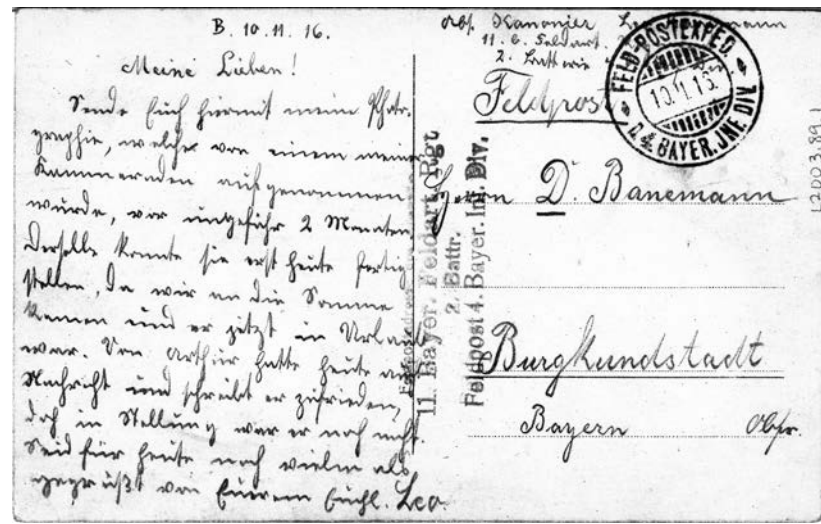 B. 10.11.16.
Meine Lieben!
Sende Euch hiermit meine Photo-
graphie, welche von einem meiner
Kammeraden aufgenommen
wurde, vor ungefähr 2 Monaten.
Derselbe konnte sie erst heute fertig
stellen, da wir an die Somme
kamen und er jetzt in Urlaub
war. Von Arthur hatte heute auch
Nachricht und schreibt er zufrieden,
doch in Stellung war er noch nicht.
Seid für heute noch vielmals
gegrüßt von Eurem Leo.
Abs. Kanonier
11. b. Feldart.
2. Batterie
Feldpost
FELD-POSTEXPED.
10.11.16
D. 4. BAYER. INF. DIV.
11. Bayer. Feldart. Rgt
2. Battr.
Feldpost 4. Bayer. Inf. Div.
Herrn D. Banemann
Burgkundstadt
Bayern Obfr.
L2003.89.1